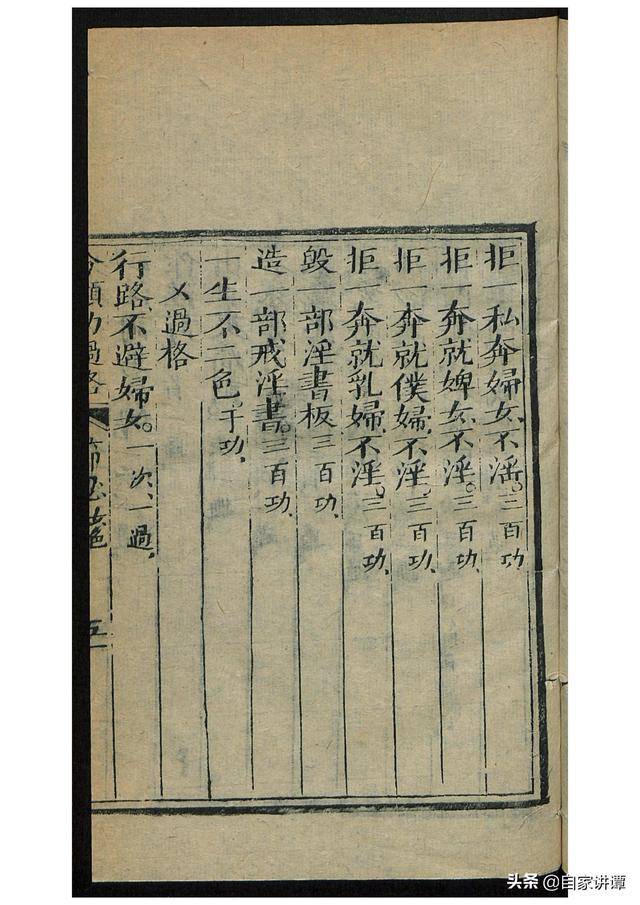 拒一私奔婦女不淫。三百功、
拒一奔就婢女不淫。三百功、
拒一奔就僕婦不淫。三百功、
拒一奔就乳婦不淫。三百功、
毀一部淫書板三百功、
造一部戒淫書。三百功、
一生不二色。千功、
乂過格
行路不避婦女。一次、一過、
功過格 五
头条@自家讲谭